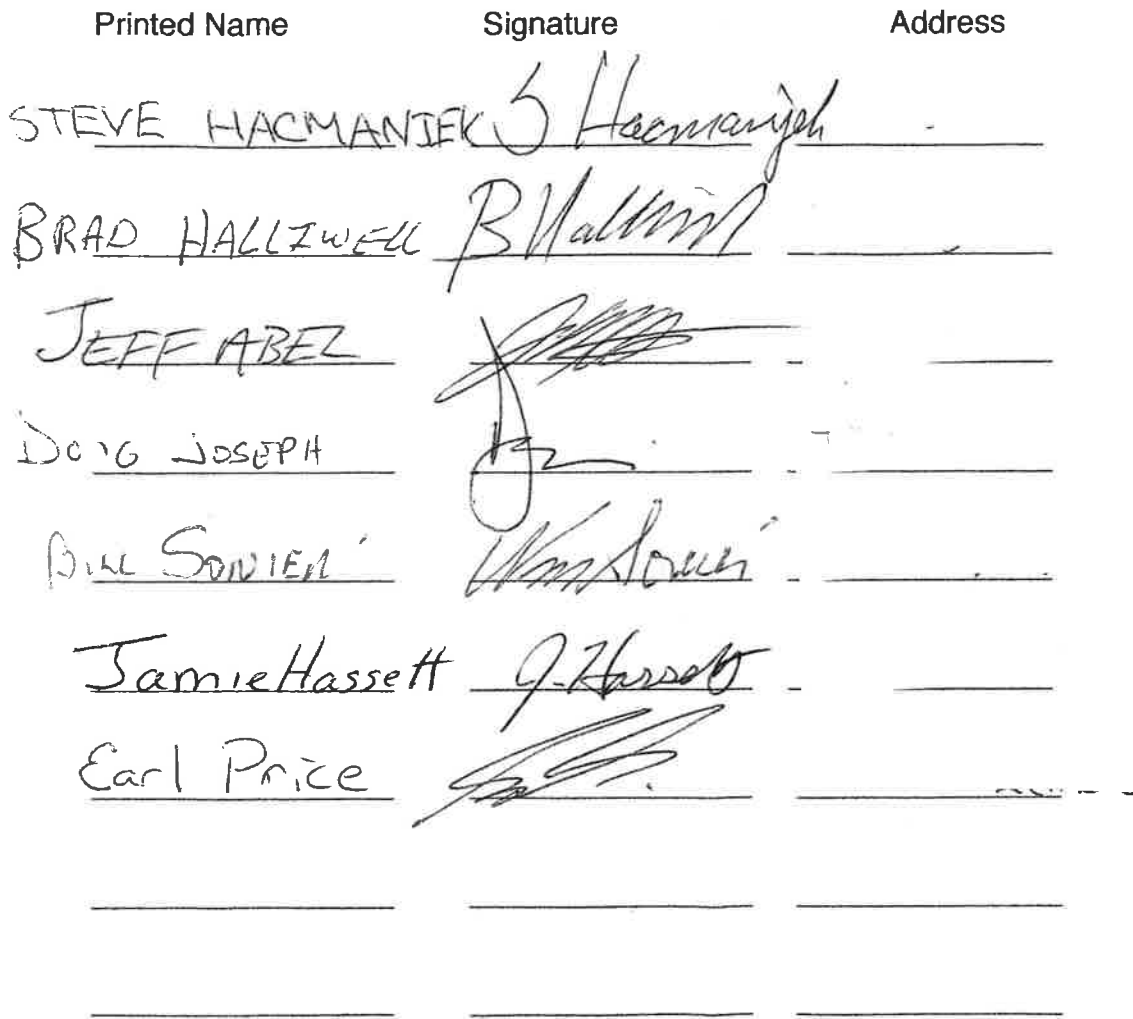 Printed Name Signature Address
STEVE HACMANIEK S Hacmanijek
BRAD HALLIWELL B Halliwell
JEFF ABEL
DOUG JOSEPH
BILL SONIER
Jamie Hassett J. Hassett
Earl Price